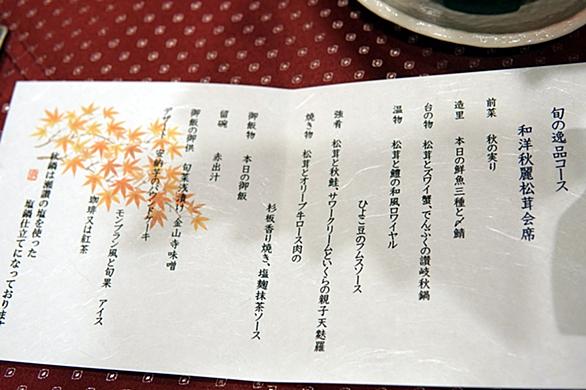 旬の逸品コース
和洋秋麗松茸会席
前菜　秋の実り
造里　本日の鮮魚三種と〆鯖
台の物　松茸とズワイ蟹、でんぶくの讃岐秋鍋
温物　松茸と鱧の和風ロワイヤル
ひよこ豆のブルムスソース
強肴　松茸と秋鮭、サワークリームといくらの親子天麩羅
焼き物　松茸とオリーブ牛ロース肉の
杉板香り焼き、塩麹抹茶ソース
御飯物　本日の御飯
留碗　赤出汁
御飯の御供　旬菜浅漬け、金山寺味噌
デザート　安納芋のパウンドケーキ
モンブラン風と旬果　アイス
珈琲又は紅茶
秋鍋は瀬讃の塩を使った
塩鍋仕立てになっております